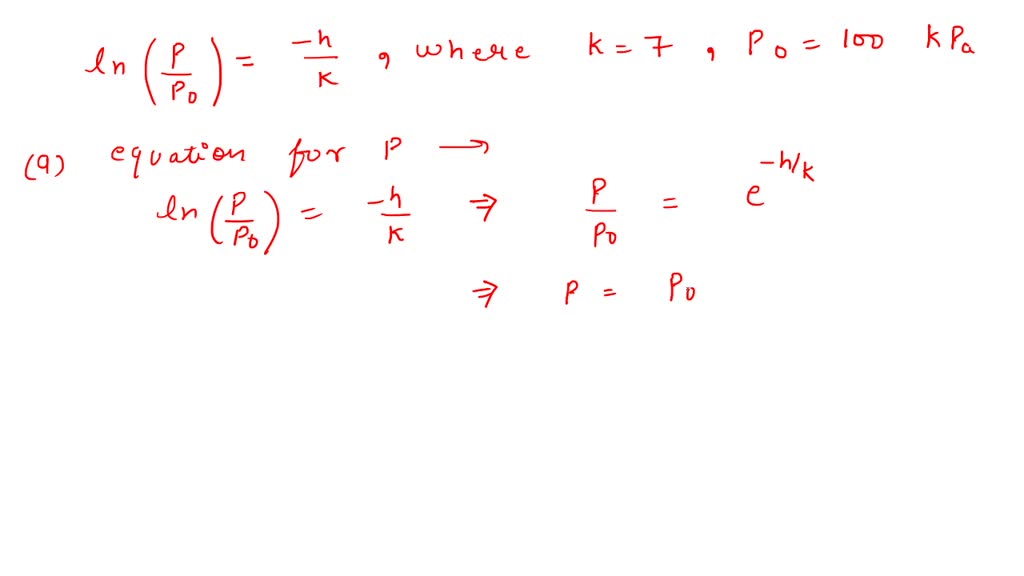 ln(P/P₀) = -h/k , where k = 7 , P₀ = 100 kPa
(a) equation for P →
ln(P/P₀) = -h/k ⇒ P/P₀ = e^(-h/k)
⇒ P = P₀